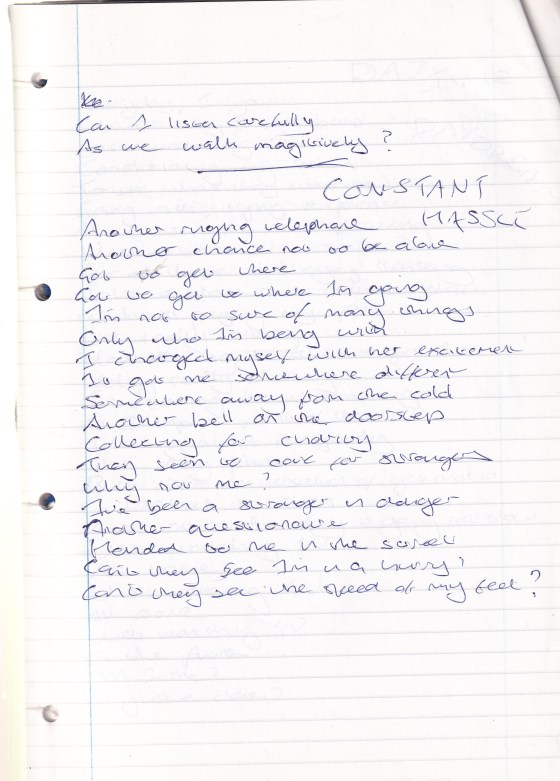 Can I listen carefully
As we walk magisively?
CONSTANT
HASSLE
Another ringing telephone
Another chance not to be alone
Got to get there
Got to get to where I'm going
I'm not so sure of many things
Only who I'm being with
I charged myself with her excitement
It got me somewhere different
Somewhere away from the cold
Another bell on the doorstep
Collecting for charity
They seem to care for strangers
Why not me?
I've been a stranger in danger
Another questionaire
Handed to me in the street
Can't they see I'm in a hurry?
Can't they see the speed of my feet?